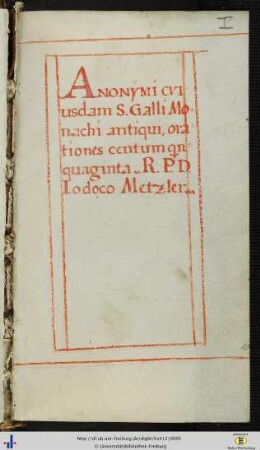 I
ANONYMI CVI
usdam S. Galli Mo-
nachi antiqui, ora
tiones centum qn
quaginta. R. P. D.
Iodoco Metzler.
http://dl.ub.uni-freiburg.de/diglit/hs412/0005
© Universitätsbibliothek Freiburg